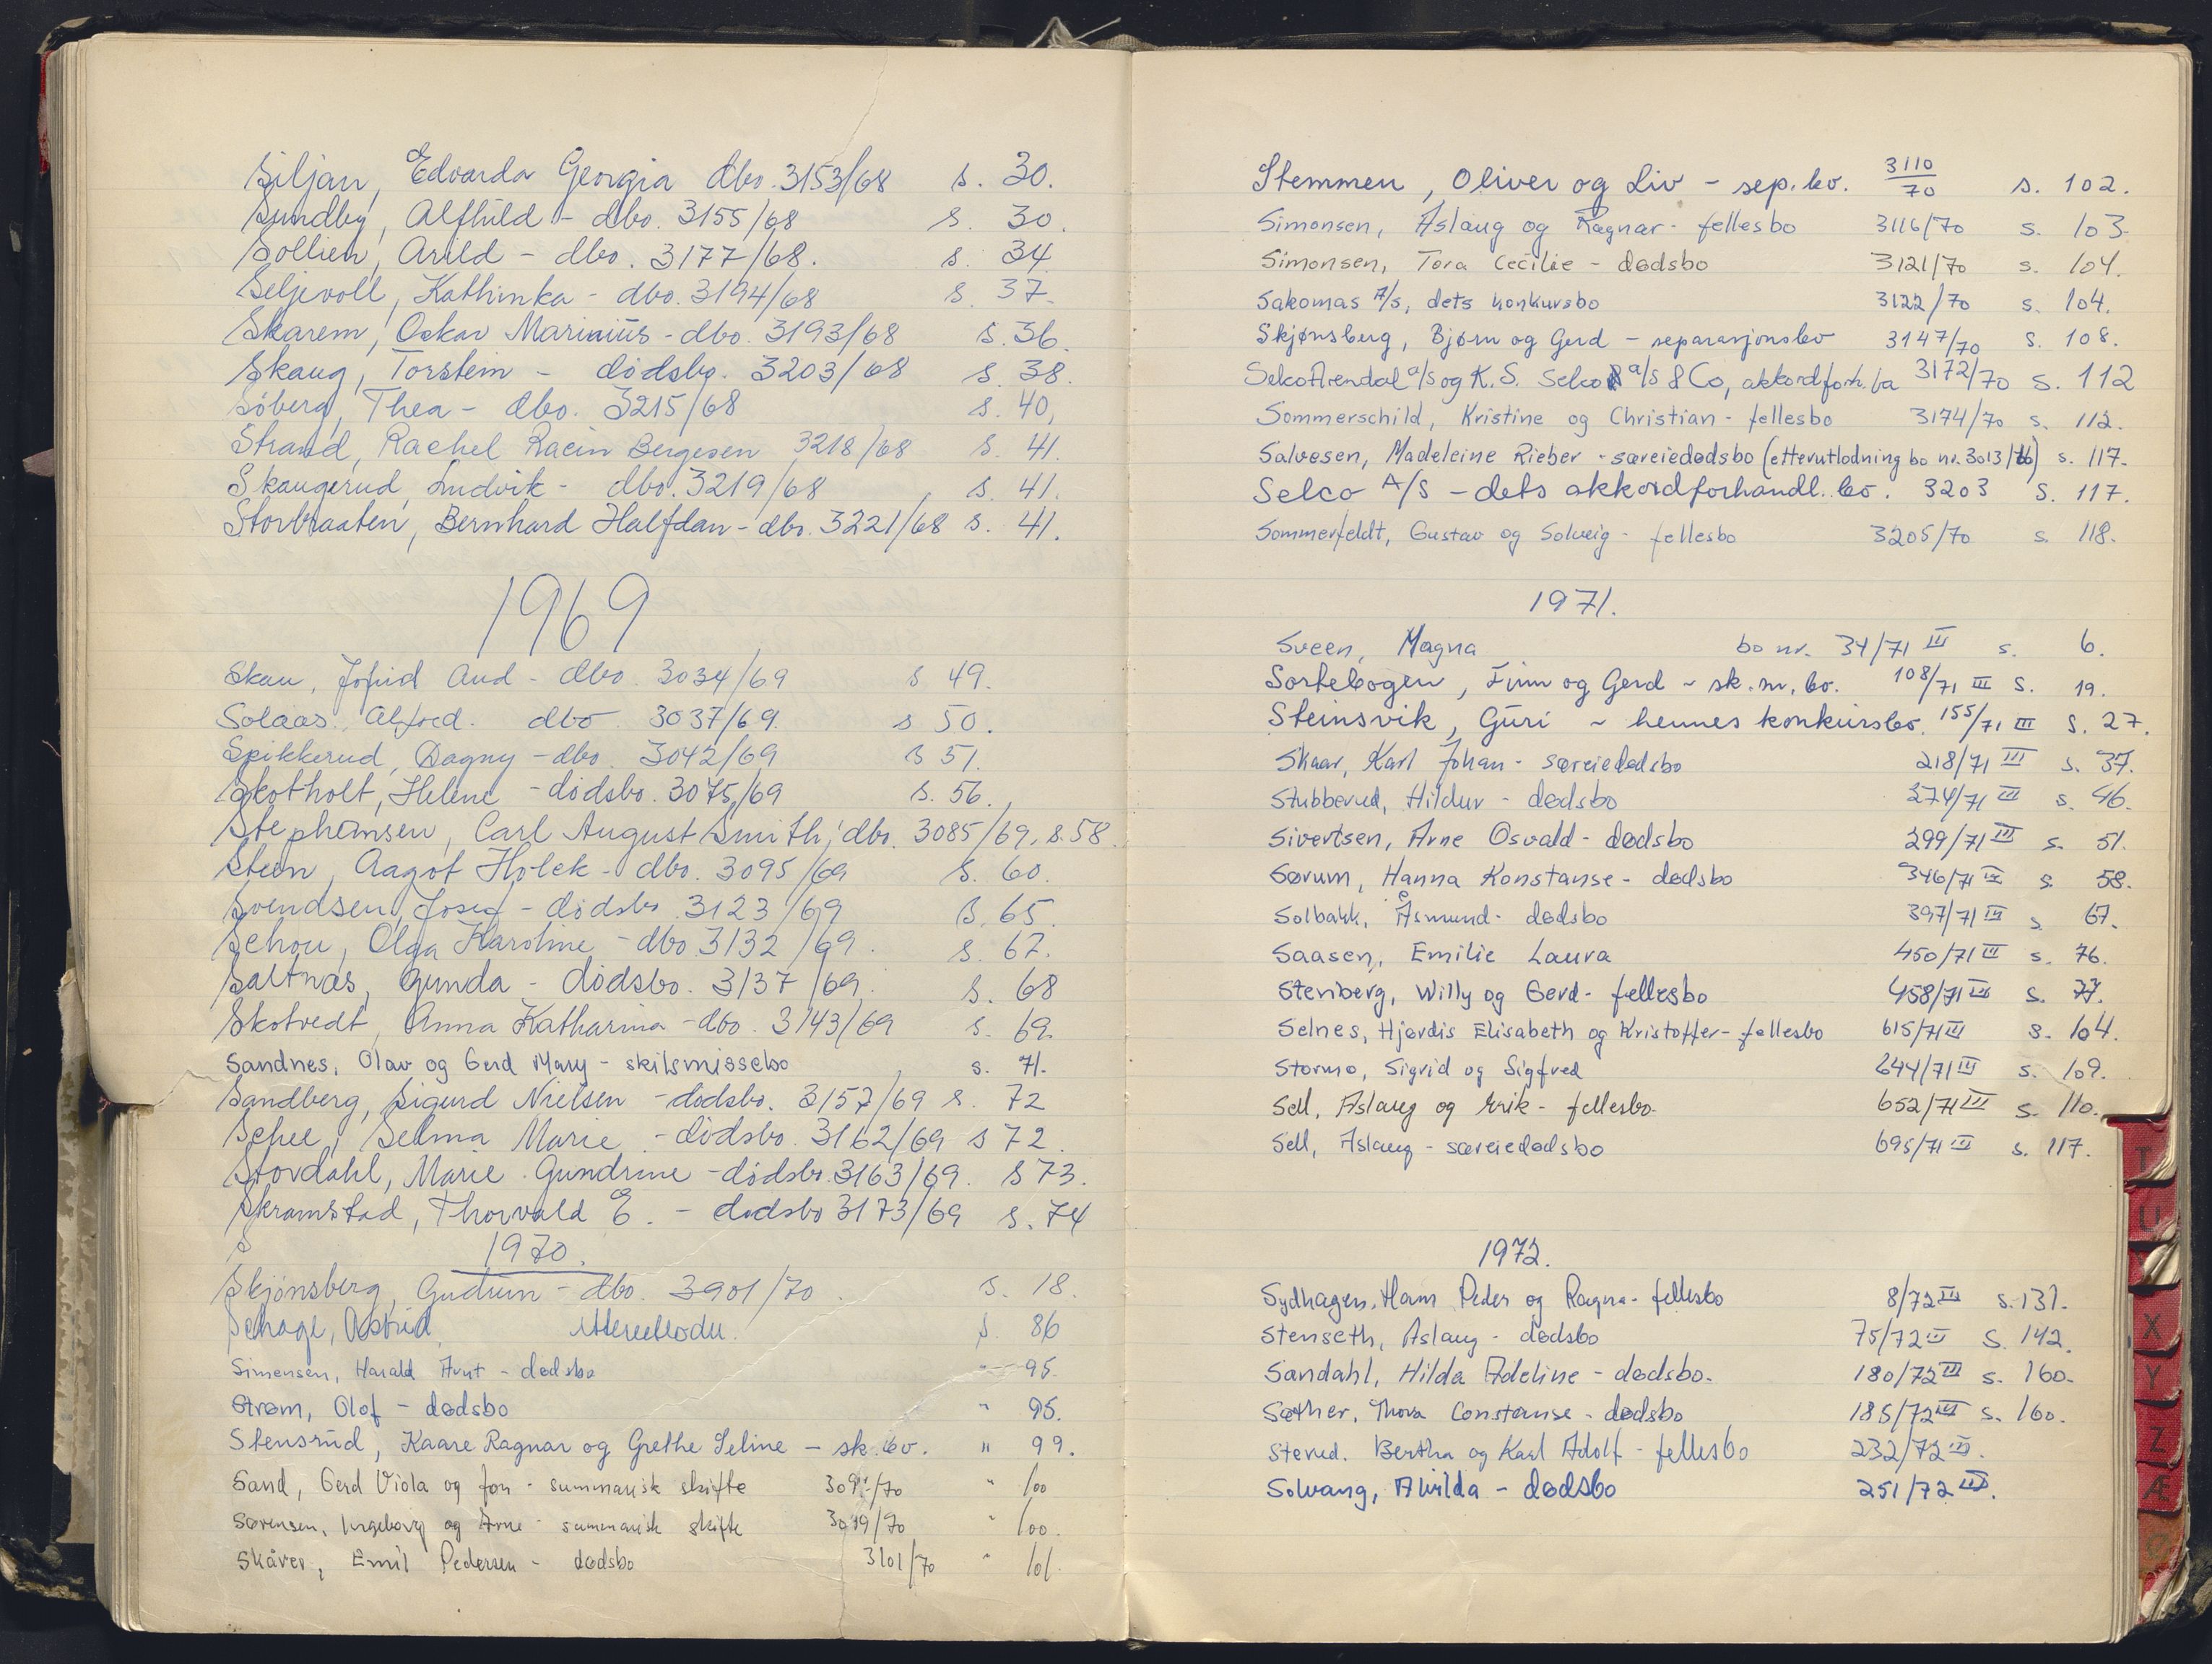 Siljan, Edvarda Georgia dbo. 3153/68 s. 30.
Sundby, Alfhild - dbo. 3155/68 s. 30.
Sollien, Arild - dbo. 3177/68. s. 34
Seljevoll, Kathinka - dbo. 3194/68 s. 37.
Skarem, Oskar Marinius - dbo. 3193/68 s. 36.
Skaug, Torstein - dödsbo. 3203/68 s. 38.
Söberg, Thea - dbo. 3215/68 s. 40,
Strand, Rachel Racin Bergesen 3218/68 s. 41.
Skaugerud, Ludvik - dbo. 3219/68 s. 41.
Storbraaten, Bernhard Halfdan - dbo. 3221/68 s. 41.
1969
Skau, Jofrid Aud - dbo. 3034/69 s 49.
Solaas. Alfred. dbo. 3037/69. s 50.
Spikkerud, Dagny - dbo. 3042/69 s 51.
Skotholt, Helene - dödsbo. 3075/69 s. 56.
Stephansen, Carl August Smith, dbo. 3085/69, s. 58.
Steen, Aagot Holck - dbo. 3095/69 s. 60.
Svendsen, Josef - dödsbo 3123/69 s. 65.
Schou, Olga Karoline - dbo 3132/69. s. 67.
Saltnæs, Gunda - dödsbo. 3137/69. s. 68
Skotvedt, Anna Katharina - dbo. 3143/69 s. 69.
Sandnes, Olav og Gerd Mary - skilsmissebo s. 71.
Sandberg, Sigurd Nielsen - dødsbo. 3157/69 s. 72
Schee, Selma Marie - dödsbo. 3162/69 s 72.
Stovdahl, Marie Gundrine - dödsbo. 3163/69. s 73.
Skramstad, Thorvald E. - dødsbo 3173/69 s. 74
S
1970.
Skjönsberg, Gudrun - dbo. 3901/70. s. 18.
Schage, Astrid s. 86
Simensen, Harald Arnt - dødsbo " 95.
Strøm, Olof - dødsbo " 95.
Stensrud, Kaare Ragnar og Grethe Seline - sk.bo. " 99.
Sand, Gerd Viola og Jon - summarisk skifte " 100
Sørensen, Ingeborg og Arne - summarisk skifte " 100.
Skåren, Emil Pedersen - dødsbo 3101/70 " 101.
Stemmen, Oliver og Liv - sep.bo. 3110/70 s. 102.
Simonsen, Aslaug og Ragnar - fellesbo 3116/70 s. 103.
Simonsen, Tora Cecilie - dødsbo 3121/70 s. 104.
Sakomas A/S, dets konkursbo 3122/70 s. 104.
Skjønsberg, Bjørn og Gerd - separasjonsbo 3147/70 s. 108.
Selco Arendal a/s og K.S. Selco a/s & Co, akkordforh.bo 3172/70 s. 112
Sommerschild, Kristine og Christian - fellesbo 3174/70 s. 112.
Salvesen, Madeleine Rieber - særeiedødsbo (etterutlodning bo nr. 3013/66) s. 117.
Selco A/S - dets akkordforhandl. bo. 3203 s. 117.
Sommerfeldt, Gustav og Solveig - fellesbo 3205/70 s. 118.
1971.
Sveen, Magna bo nr. 34/71 III s. 6.
Sortebogen, Finn og Gerd - sk.m.bo. 108/71 III s. 19.
Steinsvik, Guri - hennes konkursbo. 155/71 III s. 27.
Skaar, Karl Johan - særeiedødsbo 218/71 III s. 37.
Stubberud, Hildur - dødsbo 274/71 III s. 46.
Sivertsen, Arne Osvald - dødsbo 299/71 III s. 51.
Sørum, Hanna Konstanse - dødsbo 346/71 III s. 58.
Solbakk, Åsmund - dødsbo 397/71 III s. 67.
Saasen, Emilie Laura 450/71 III s. 76.
Stenberg, Willy og Gerd - fellesbo 458/71 III s. 77.
Selnes, Hjørdis Elisabeth og Kristoffer - fellesbo 615/71 III s. 104.
Stormo, Sigrid og Sigfred 644/71 III s. 109.
Sell, Aslaug og Erik - fellesbo. 652/71 III s. 110.
Sell, Aslaug - særeiedødsbo 695/71 III s. 117.
1972.
Sydhagen, Ham Peder og Ragna - fellesbo 8/72 III s. 131.
Stenseth, Aslaug - dødsbo 75/72 III s. 142.
Sandahl, Hilda Adeline - dødsbo. 180/72 III s. 160.
Sæther, Thora Constanse - dødsbo 185/72 III s. 160.
Bertha og Karl Adolf - fellesbo 232/72 III.
Solvang, Alvilda - dødsbo 251/72 III.
T
U
X
Y
Z
Æ
Ø